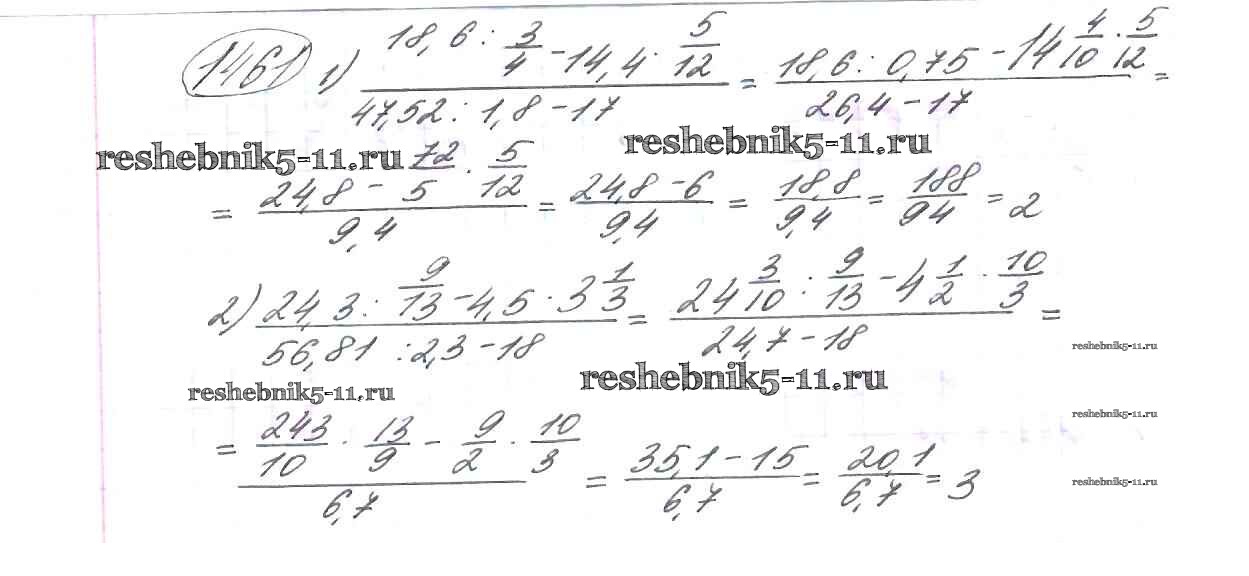 1461 1) (18,6 : 3/4 - 14,4 · 5/12) / (47,52 : 1,8 - 17) = (18,6 : 0,75 - 14 4/10 · 5/12) / (26,4 - 17) =
reshebnik5-11.ru reshebnik5-11.ru
= (24,8 - 72/5 · 5/12) / 9,4 = (24,8 - 6) / 9,4 = 18,8 / 9,4 = 188 / 94 = 2
2) (24,3 : 9/13 - 4,5 · 3 1/3) / (56,81 : 2,3 - 18) = (24 3/10 : 9/13 - 4 1/2 · 10/3) / (24,7 - 18) =
reshebnik5-11.ru
reshebnik5-11.ru reshebnik5-11.ru
reshebnik5-11.ru
= (243/10 · 13/9 - 9/2 · 10/3) / 6,7 = (35,1 - 15) / 6,7 = 20,1 / 6,7 = 3
reshebnik5-11.ru